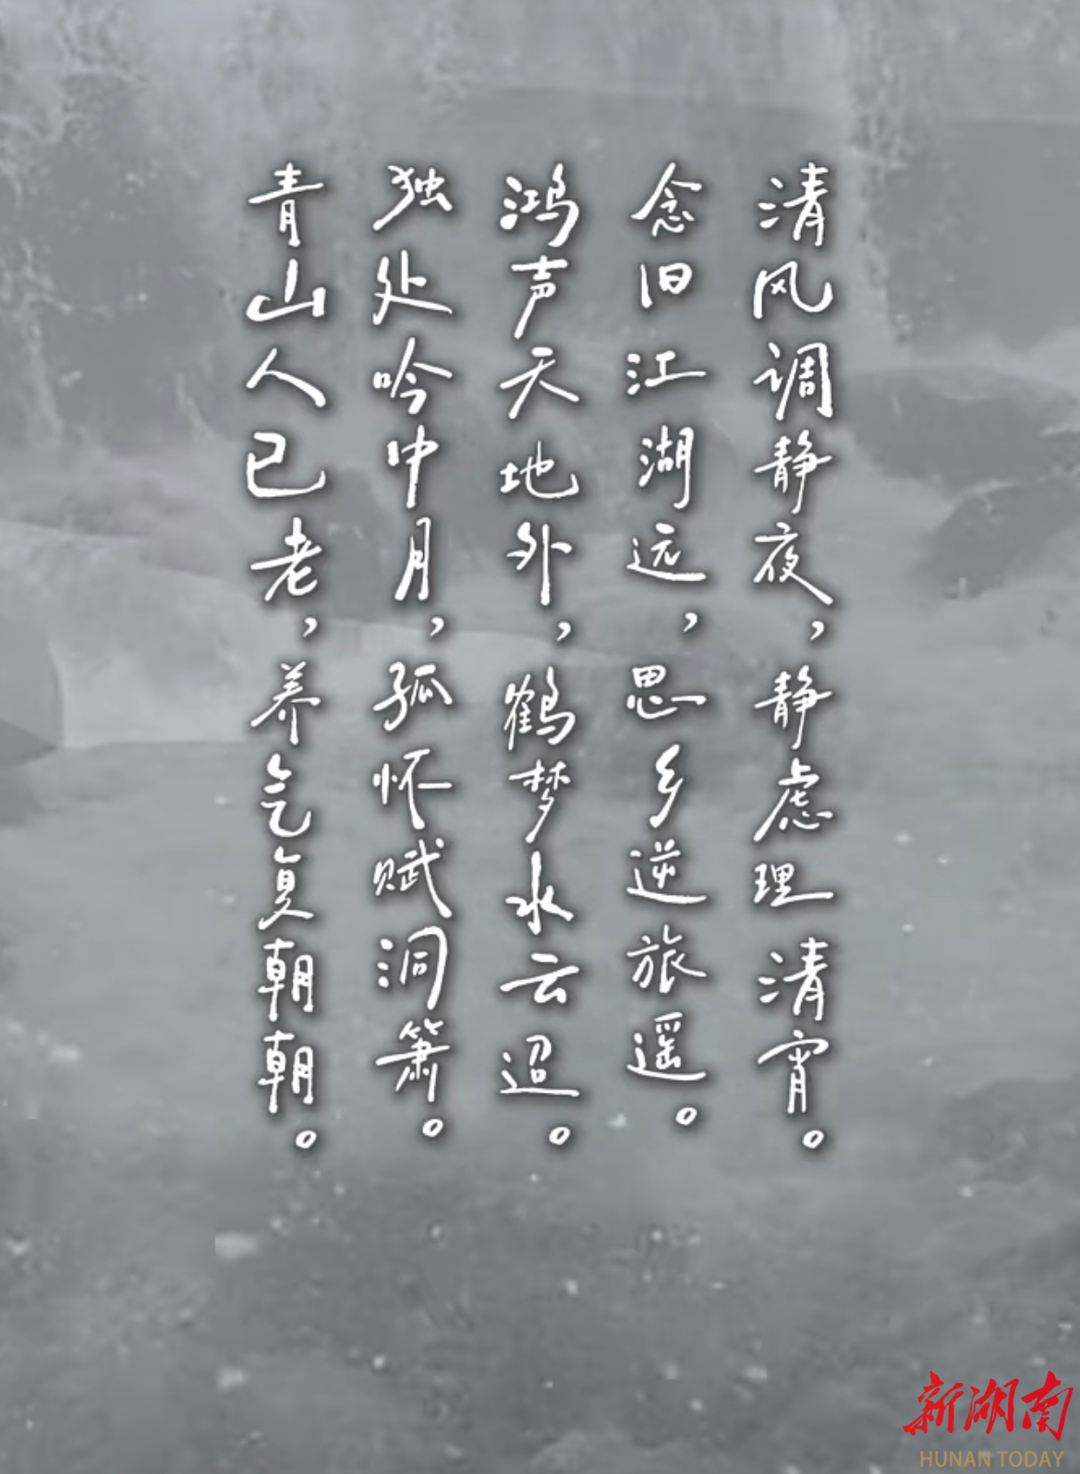 清风调静夜，静虑理清宵。
念旧江湖远，思乡逆旅遥。
鸿声天地外，鹤梦水云迢。
独处吟中月，孤怀赋洞箫。
青山人已老，养气复朝朝。
新湖南
HUNAN TODAY